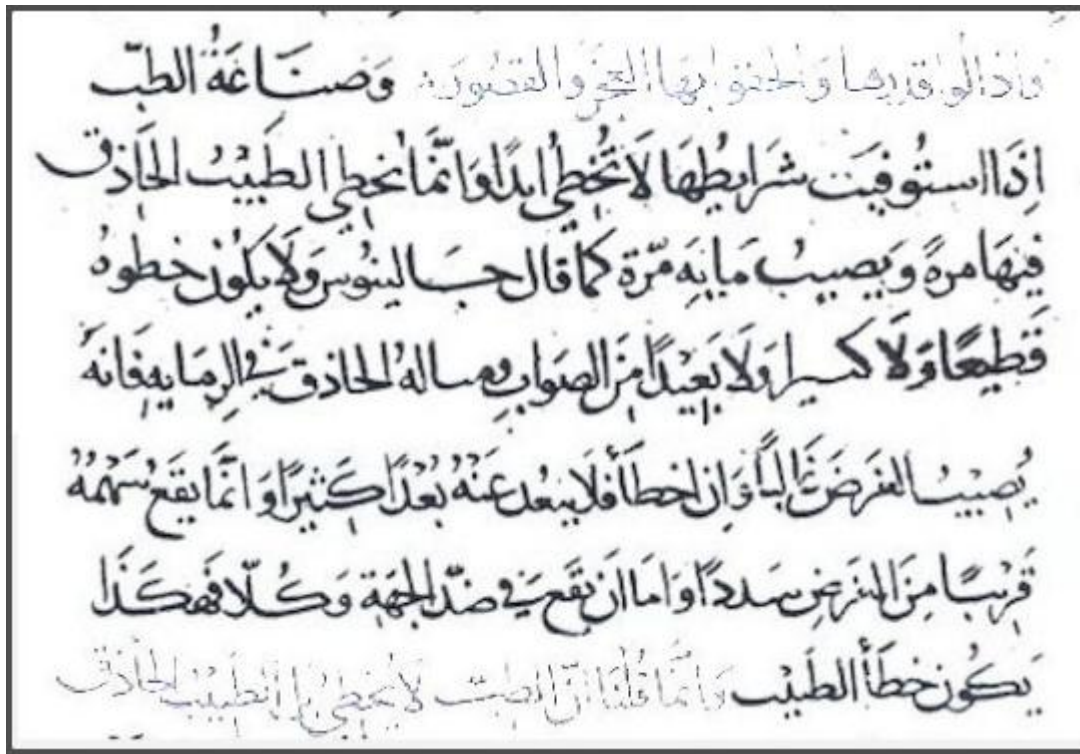 واذالوا قدرها والحقوا بها العجز والقصور، وَصنَاعَةُ الطبّ
اِذَا استُوفيَت شرَايطُهَا لاَ تُخطِي ابدًا وَانمَّا نُخطِي الطَبيْبُ الحَاذق
فيهَا مرةً وَيَصيبُ مَايَهِ مّرة كمَا قال جَالينُوس وَلاَ يكُون خطوهُ
قَطيعًا وَلاَ كسيرا وَلاَ بَعِيْدًا مِنَ الصَواب ومساله الحاذق في الرمَايهِ فَانهُ
يُصِيْبُ الغرَضَ غالبًا وَان اخطَأ فَلاَ يبعُد عَنْهُ بُعْدًا كَثيْرًا وَانمَّا يقَعُ سَهْمُهُ
قرِيْبًا مِنَ الغرض سَددًا وَامَا ان يَقَع في ضدّ الجهَةِ وَكُلّا فهٰكَذَا
يَكُون خطأ الطَبيْب وَانمَّا قُلنَا انّ الطِبّ لاَ يخطِي بل الطَبيْب الحَاذق